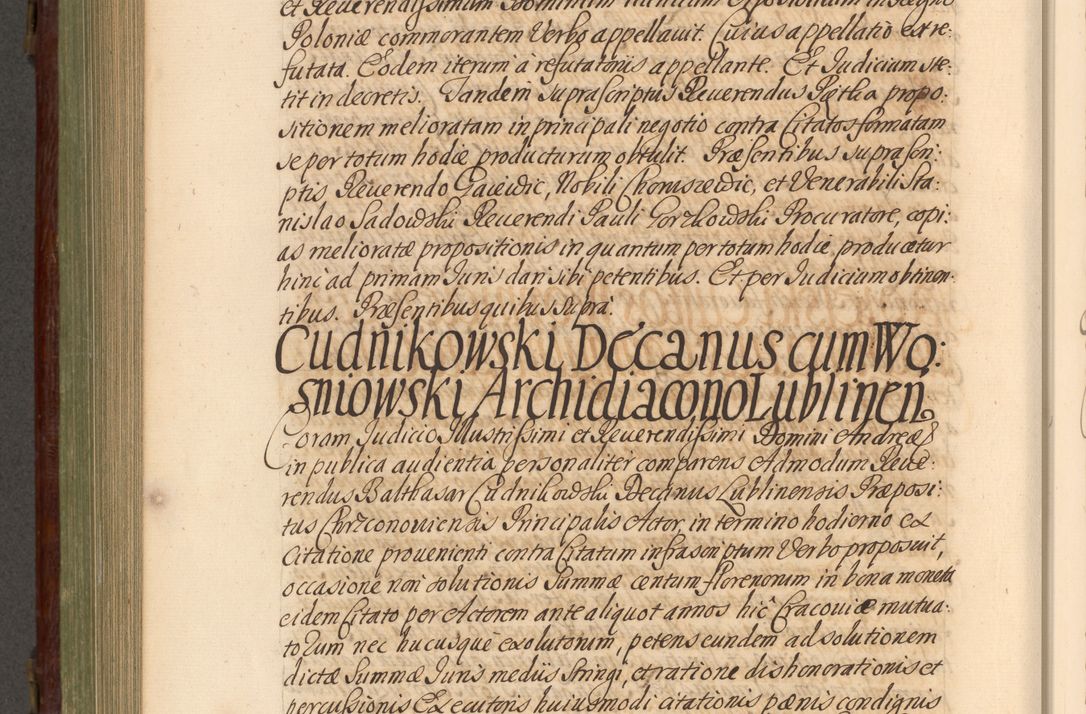 et Reverendissimum Dominum Nuncium Apostolicum in Regno
Poloniæ commorantem Verbo appellavit. Cuius appellatio est re:
futata. Eodem iterum à refutatonis appellante. Et Iudicium ste:
tit in decretis. Tandem supra scriptus Reuerendus Rætka propo:
sitionem melioratam in principali negotio contra Citatos formatam
se per totum hodiæ producturum obtulit. Præsentibus supra scri:
ptis Reuerendo Gaiewic, Nobili Chomszewic, et Venerabili Sta:
nislao Sadowski Reuerendi Pauli Gorzkowski Procuratore, copi:
as melioratæ propositionis in quantum per totum hodie producetur
hinc ad primam Iuris dari sibi petentibus. Et per Iudicium obtinen:
tibus. Præsentibus quibus supra.
Cudnikowski Decanus cum Wo:
sniowski Archidiacono Lublinen.
Coram Iudicio Illustrissimi et Reuerendissimi Domini Andreæ
in publica audientia personaliter comparens Admodum Reue:
rendus Balthasar Cudnikowski Decanus Lublinensis Præposi:
tus Chrzconouiensis Principalis Actor, in termino hodierno ex
Citatione prouenienti contra Citatum infrascriptum Verbo proposuit,
occasione non solutionis Summæ centum florenorum in bona moneta
eidem Citato per Actorem ante aliquot annos hic Cracouiæ mutua:
torum nec hucusque exolutorum, petens eundem ad solutionem
dictæ Summæ Iuris mediis stringi, et ratione dishonorationis et
percussionis Executoris huiusmodi citationis pænis condignis